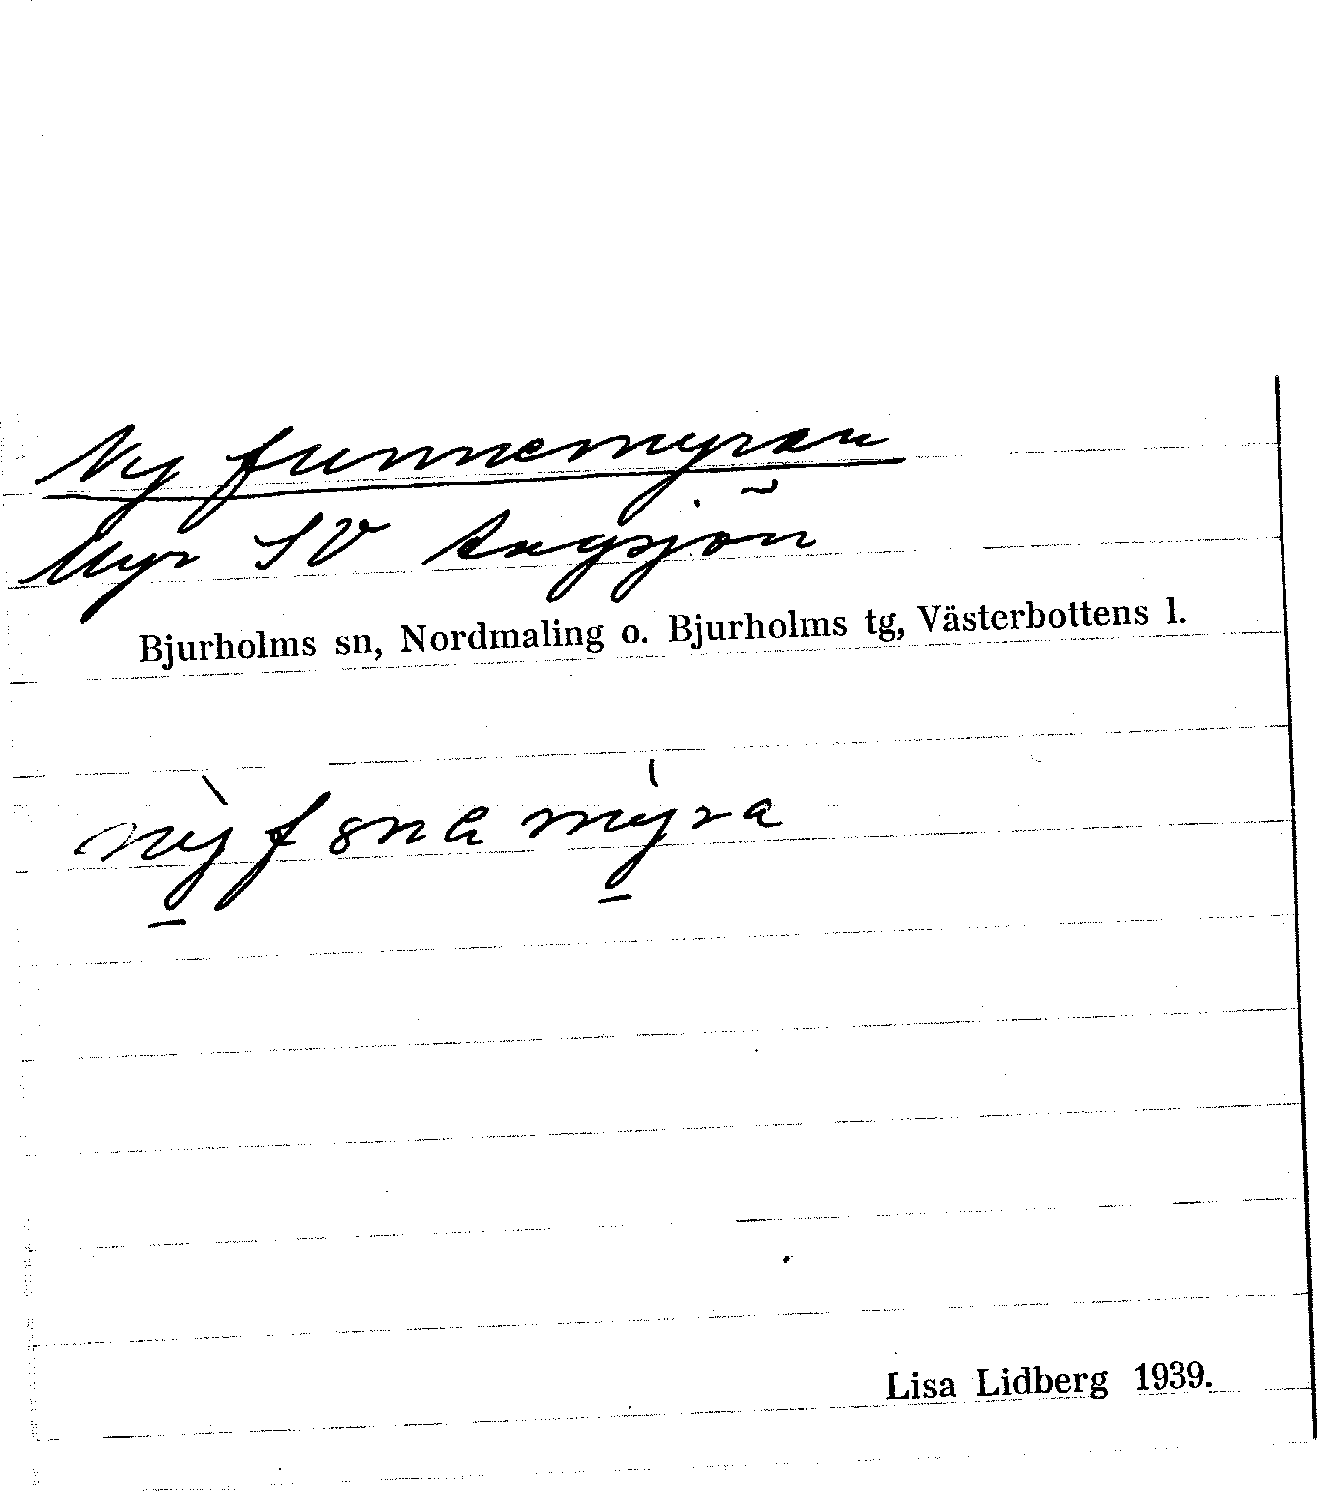 Nyfunnemyran
Myr SV Angsjön
Bjurholms sn, Nordmaling o. Bjurholms tg, Västerbottens l.
Lisa Lidberg 1939.